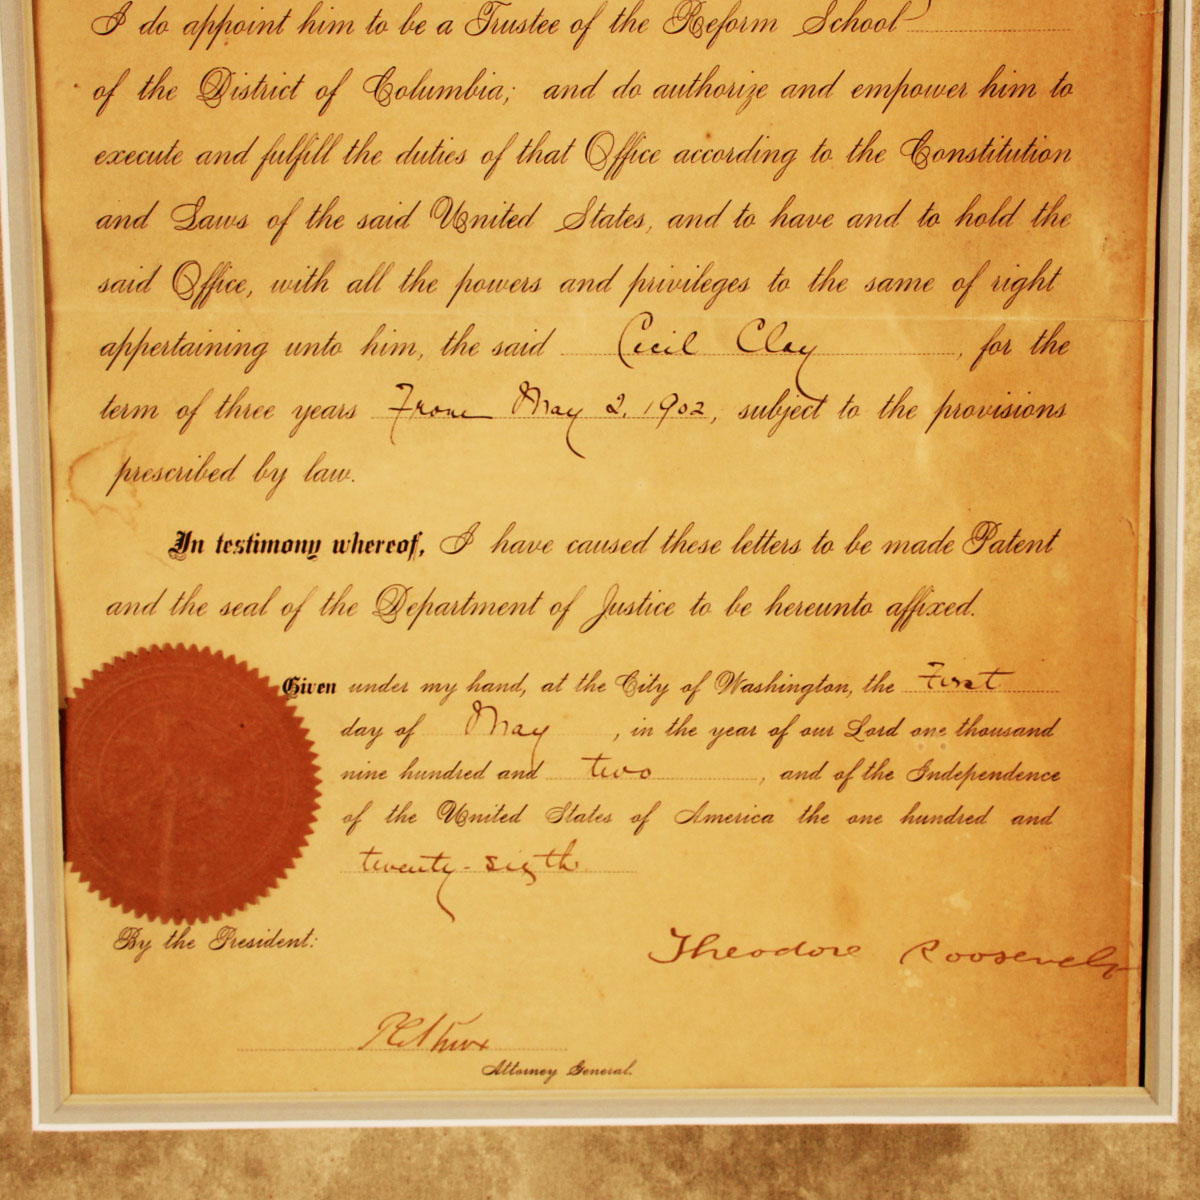 I do appoint him to be a Trustee of the Reform School
of the District of Columbia; and do authorize and empower him to
execute and fulfill the duties of that Office according to the Constitution
and Laws of the said United States, and to have and to hold the
said Office, with all the powers and privileges to the same of right
appertaining unto him, the said Cecil Clay, for the
term of three years From May 2, 1902, subject to the provisions
prescribed by law.
In testimony whereof, I have caused these letters to be made Patent
and the seal of the Department of Justice to be hereunto affixed.
Given under my hand, at the City of Washington, the First
day of May, in the year of our Lord one thousand
nine hundred and two, and of the Independence
of the United States of America the one hundred and
twenty-sixth.
By the President:
Theodore Roosevelt
P C Knox
Attorney General.